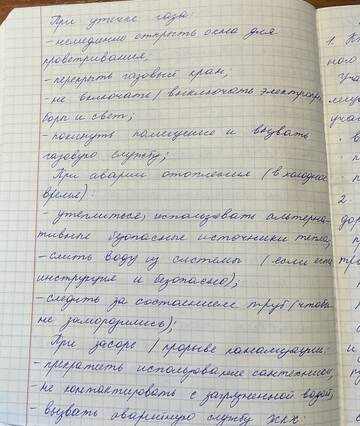 При утечке газа:
- немедленно открыть окна для
проветривания;
- перекрыть газовый кран,
- не включать/выключать электропри-
боры и свет;
- покинуть помещение и вызвать
газовую службу;
При аварии отопления (в холодное
время):
- утеплиться, использовать альтерна-
тивные безопасные источники тепла,
- слить воду из системы (если есть
инструкция и безопасно);
- следить за состоянием труб (чтобы
не заморозились);
При засоре / прорыве канализации:
- прекратить использование сантехники;
- не контактировать с загрязненной водой;
- вызвать аварийную службу ЖКХ.
1.
ного
2